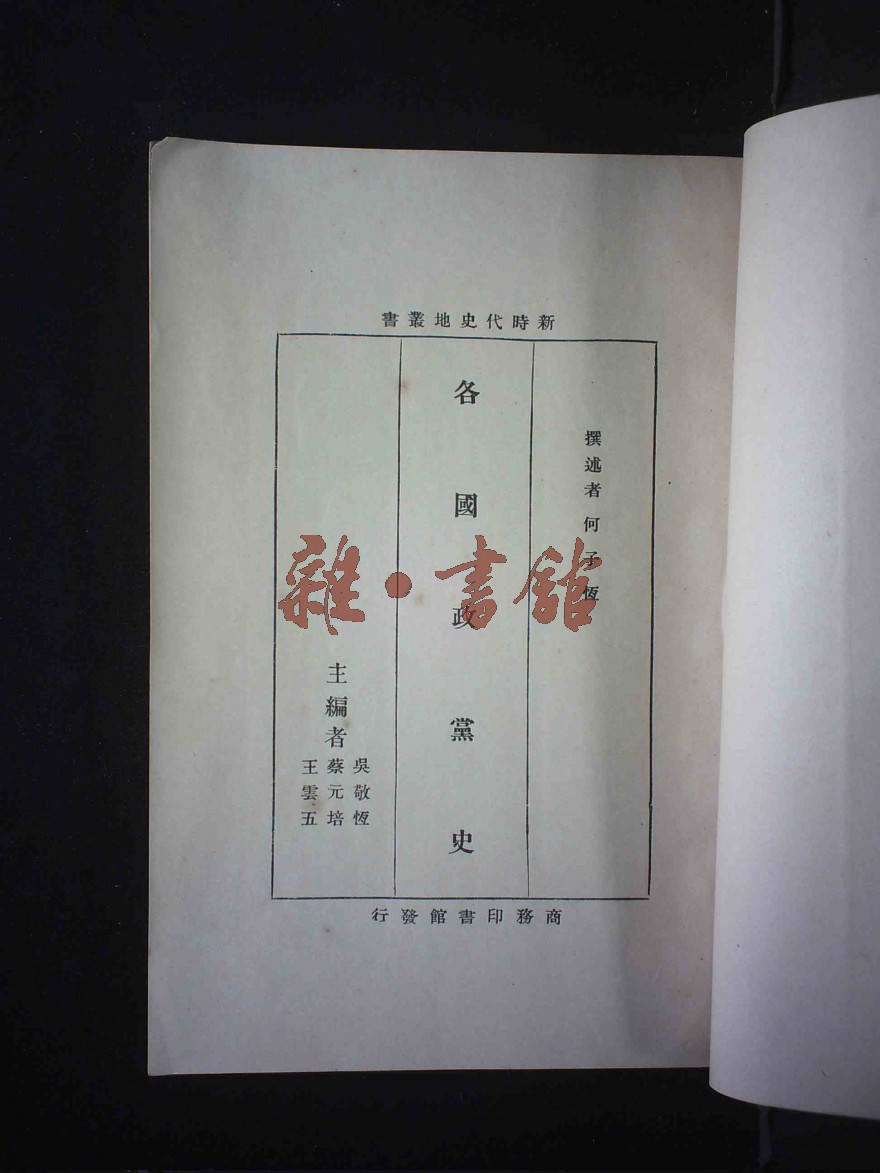 新時代史地叢書
撰述者何子恆
各國政黨史
主編者
吳敬恆
蔡元培
王雲五
商務印書館發行
雜·書館